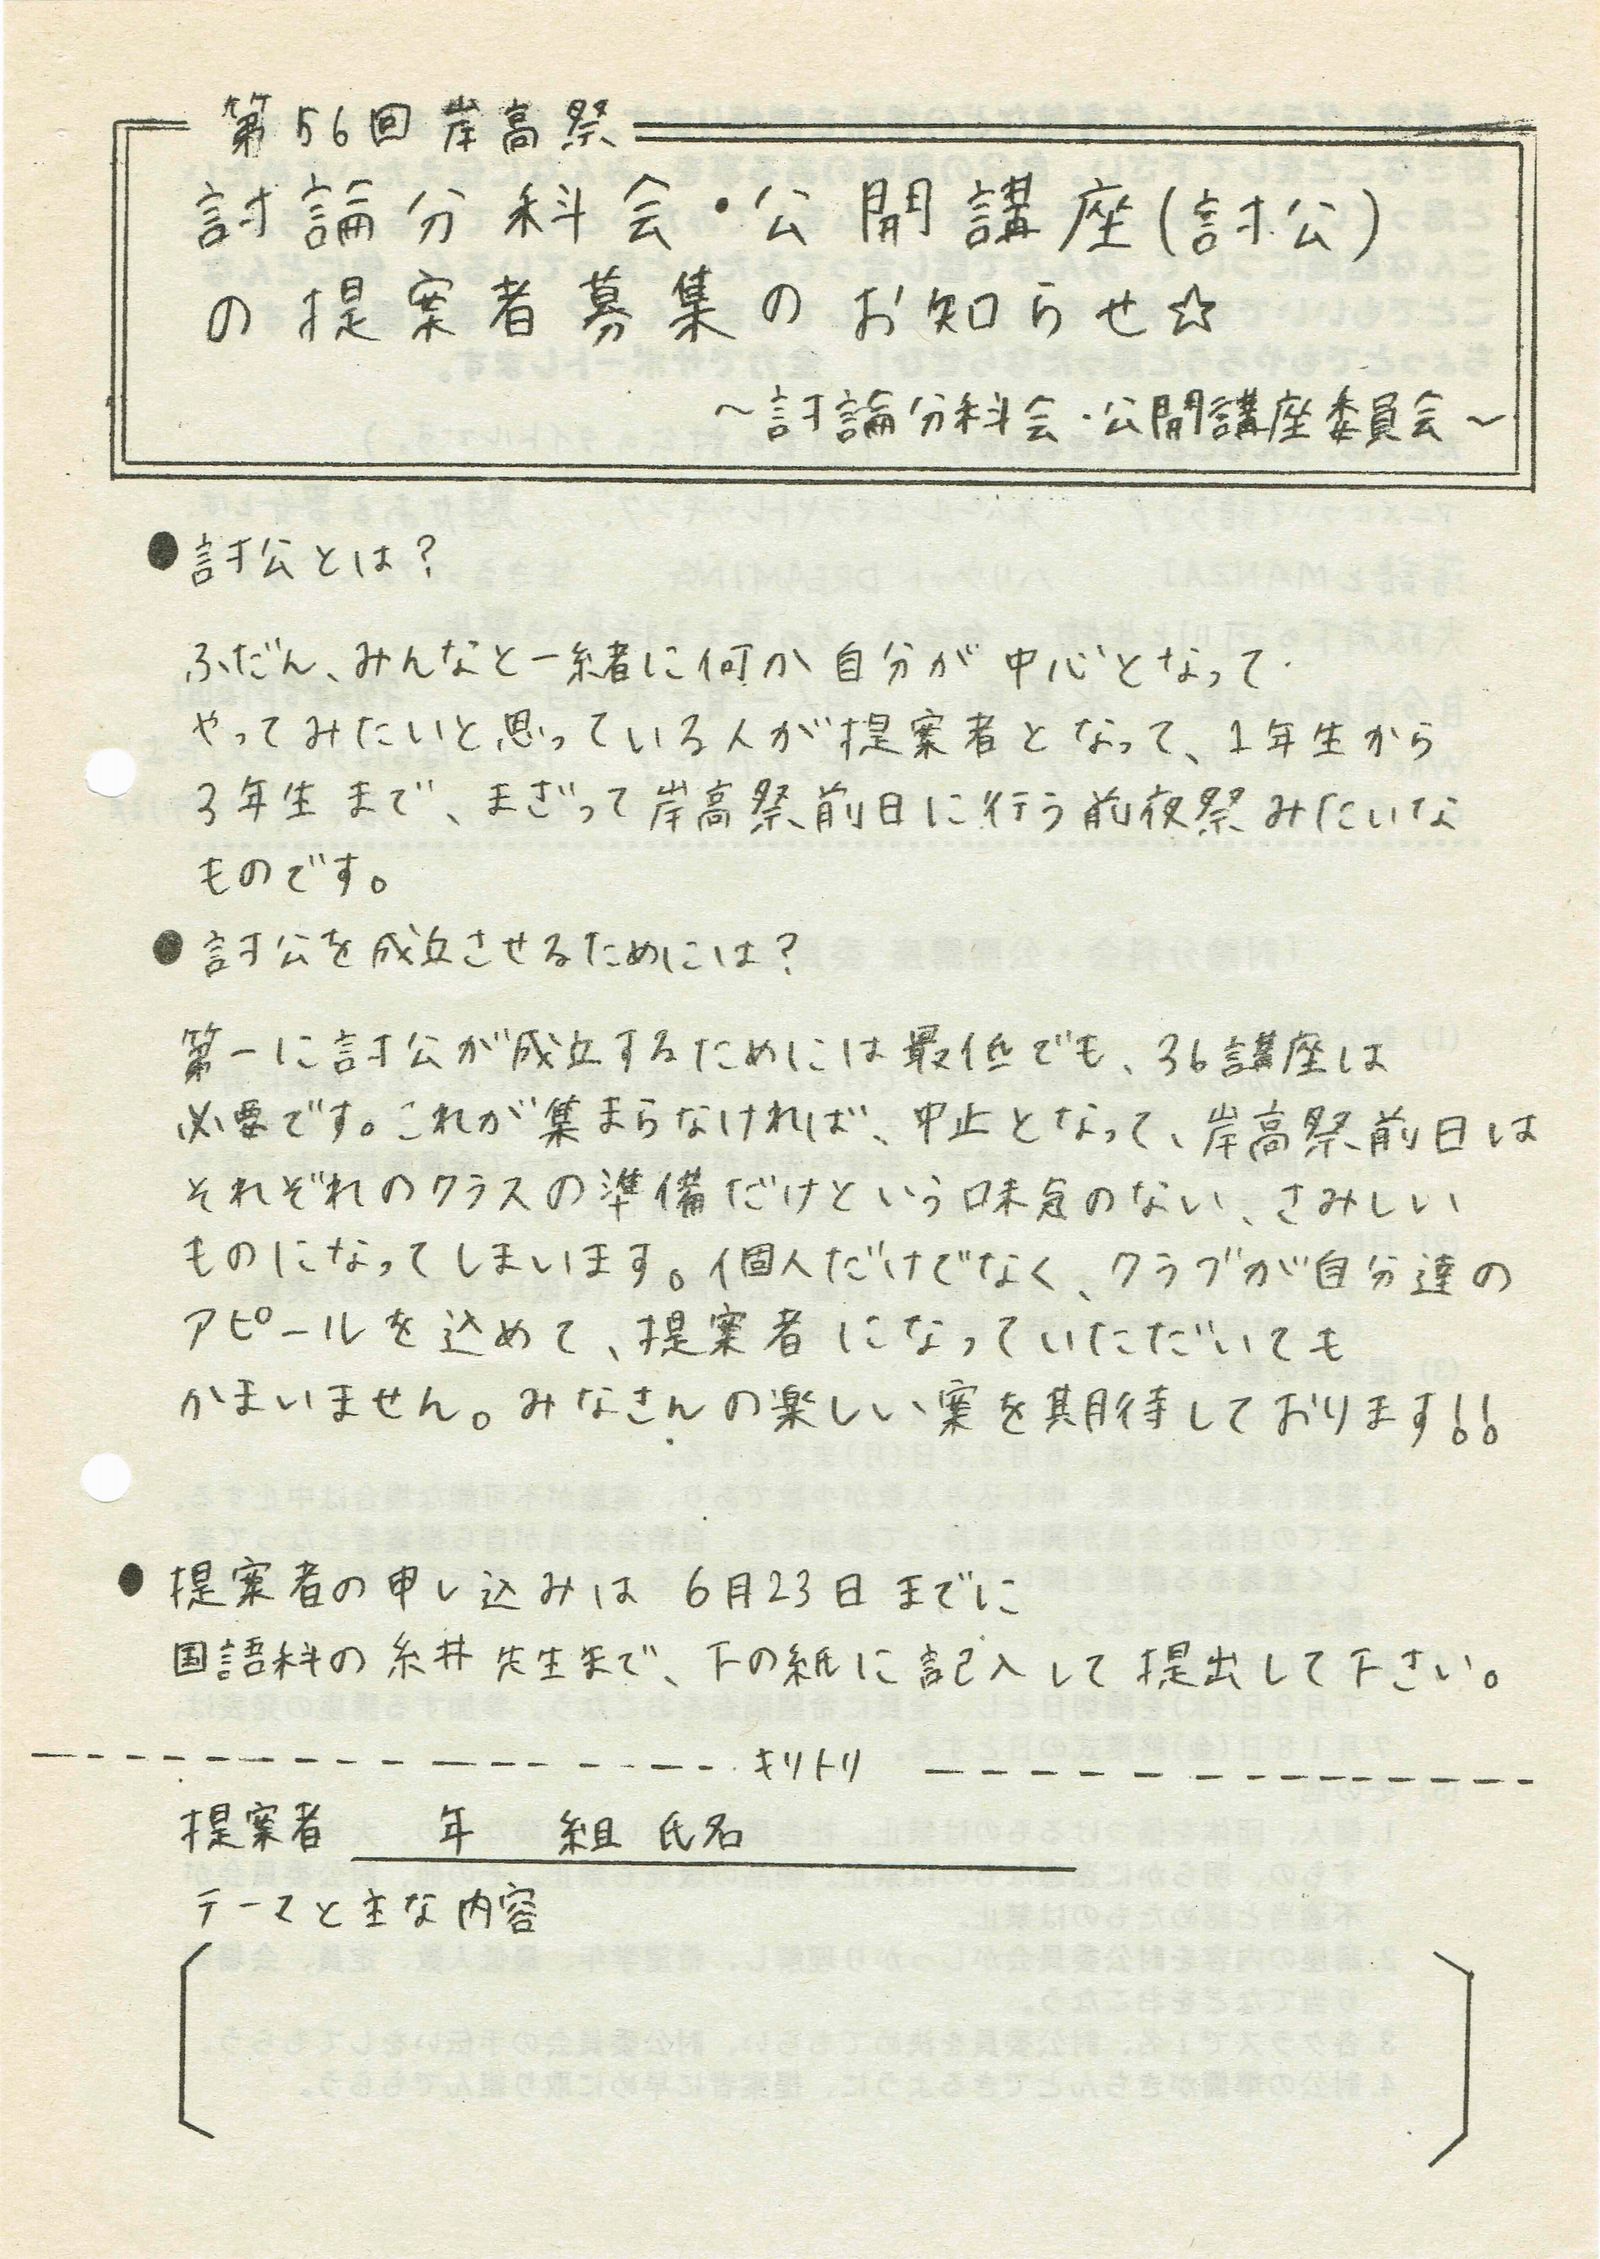 第56回 岸高祭
討論分科会・公開講座(討公)
の提案者募集のお知らせ☆
～討論分科会・公開講座委員会～
●討公とは?
ふだん、みんなと一緒に何か自分が中心となって
やってみたいと思っている人が提案者となって、1年生から
3年生まで、まざって岸高祭前日に行う前夜祭みたいな
ものです。
●討公を成立させるためには?
第一に討公が成立するためには最低でも、36講座は
必要です。これが集まらなければ、中止となって、岸高祭前日は
それぞれのクラスの準備だけという味気のない、さみしい
ものになってしまいます。個人だけでなく、クラブが自分達の
アピールを込めて、提案者になっていただいても
かまいません。みなさんの楽しい案を期待しております!!
●提案者の申し込みは 6月23日までに
国語科の糸井先生まで、下の紙に記入して提出して下さい。
キリトリ
提案者 年 組 氏名
テーマと主な内容